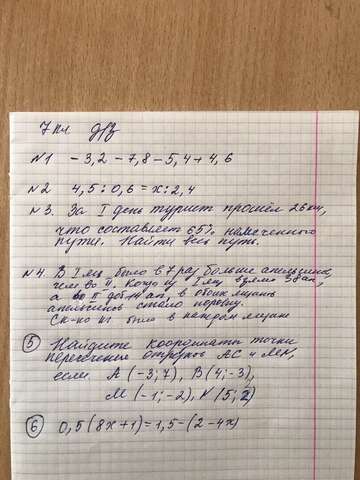 7 кл д/з
№1 - 3,2 - 7,8 - 5,4 + 4,6
№2 4,5 : 0,6 = x : 2,4
№3. За I день турист прошёл 26 км,
что составляет 65% намеченного
пути. Найти весь путь.
№4. В I ящ было в 7 раз больше апельсинов,
чем во II. Когда из I ящ взяли 38 ап,
а во II доб. 14 ап, в обоих ящиках
апельсинов стало поровну.
Ск-ко ап было в каждом ящике
5 Найдите координаты точки
пересечения отрезков AC и MN,
если A (-3; 7), B (4; -3),
M (-1; -2), N (5; 2)
6 0,5 (8x + 1) = 1,5 - (2 - 4x)